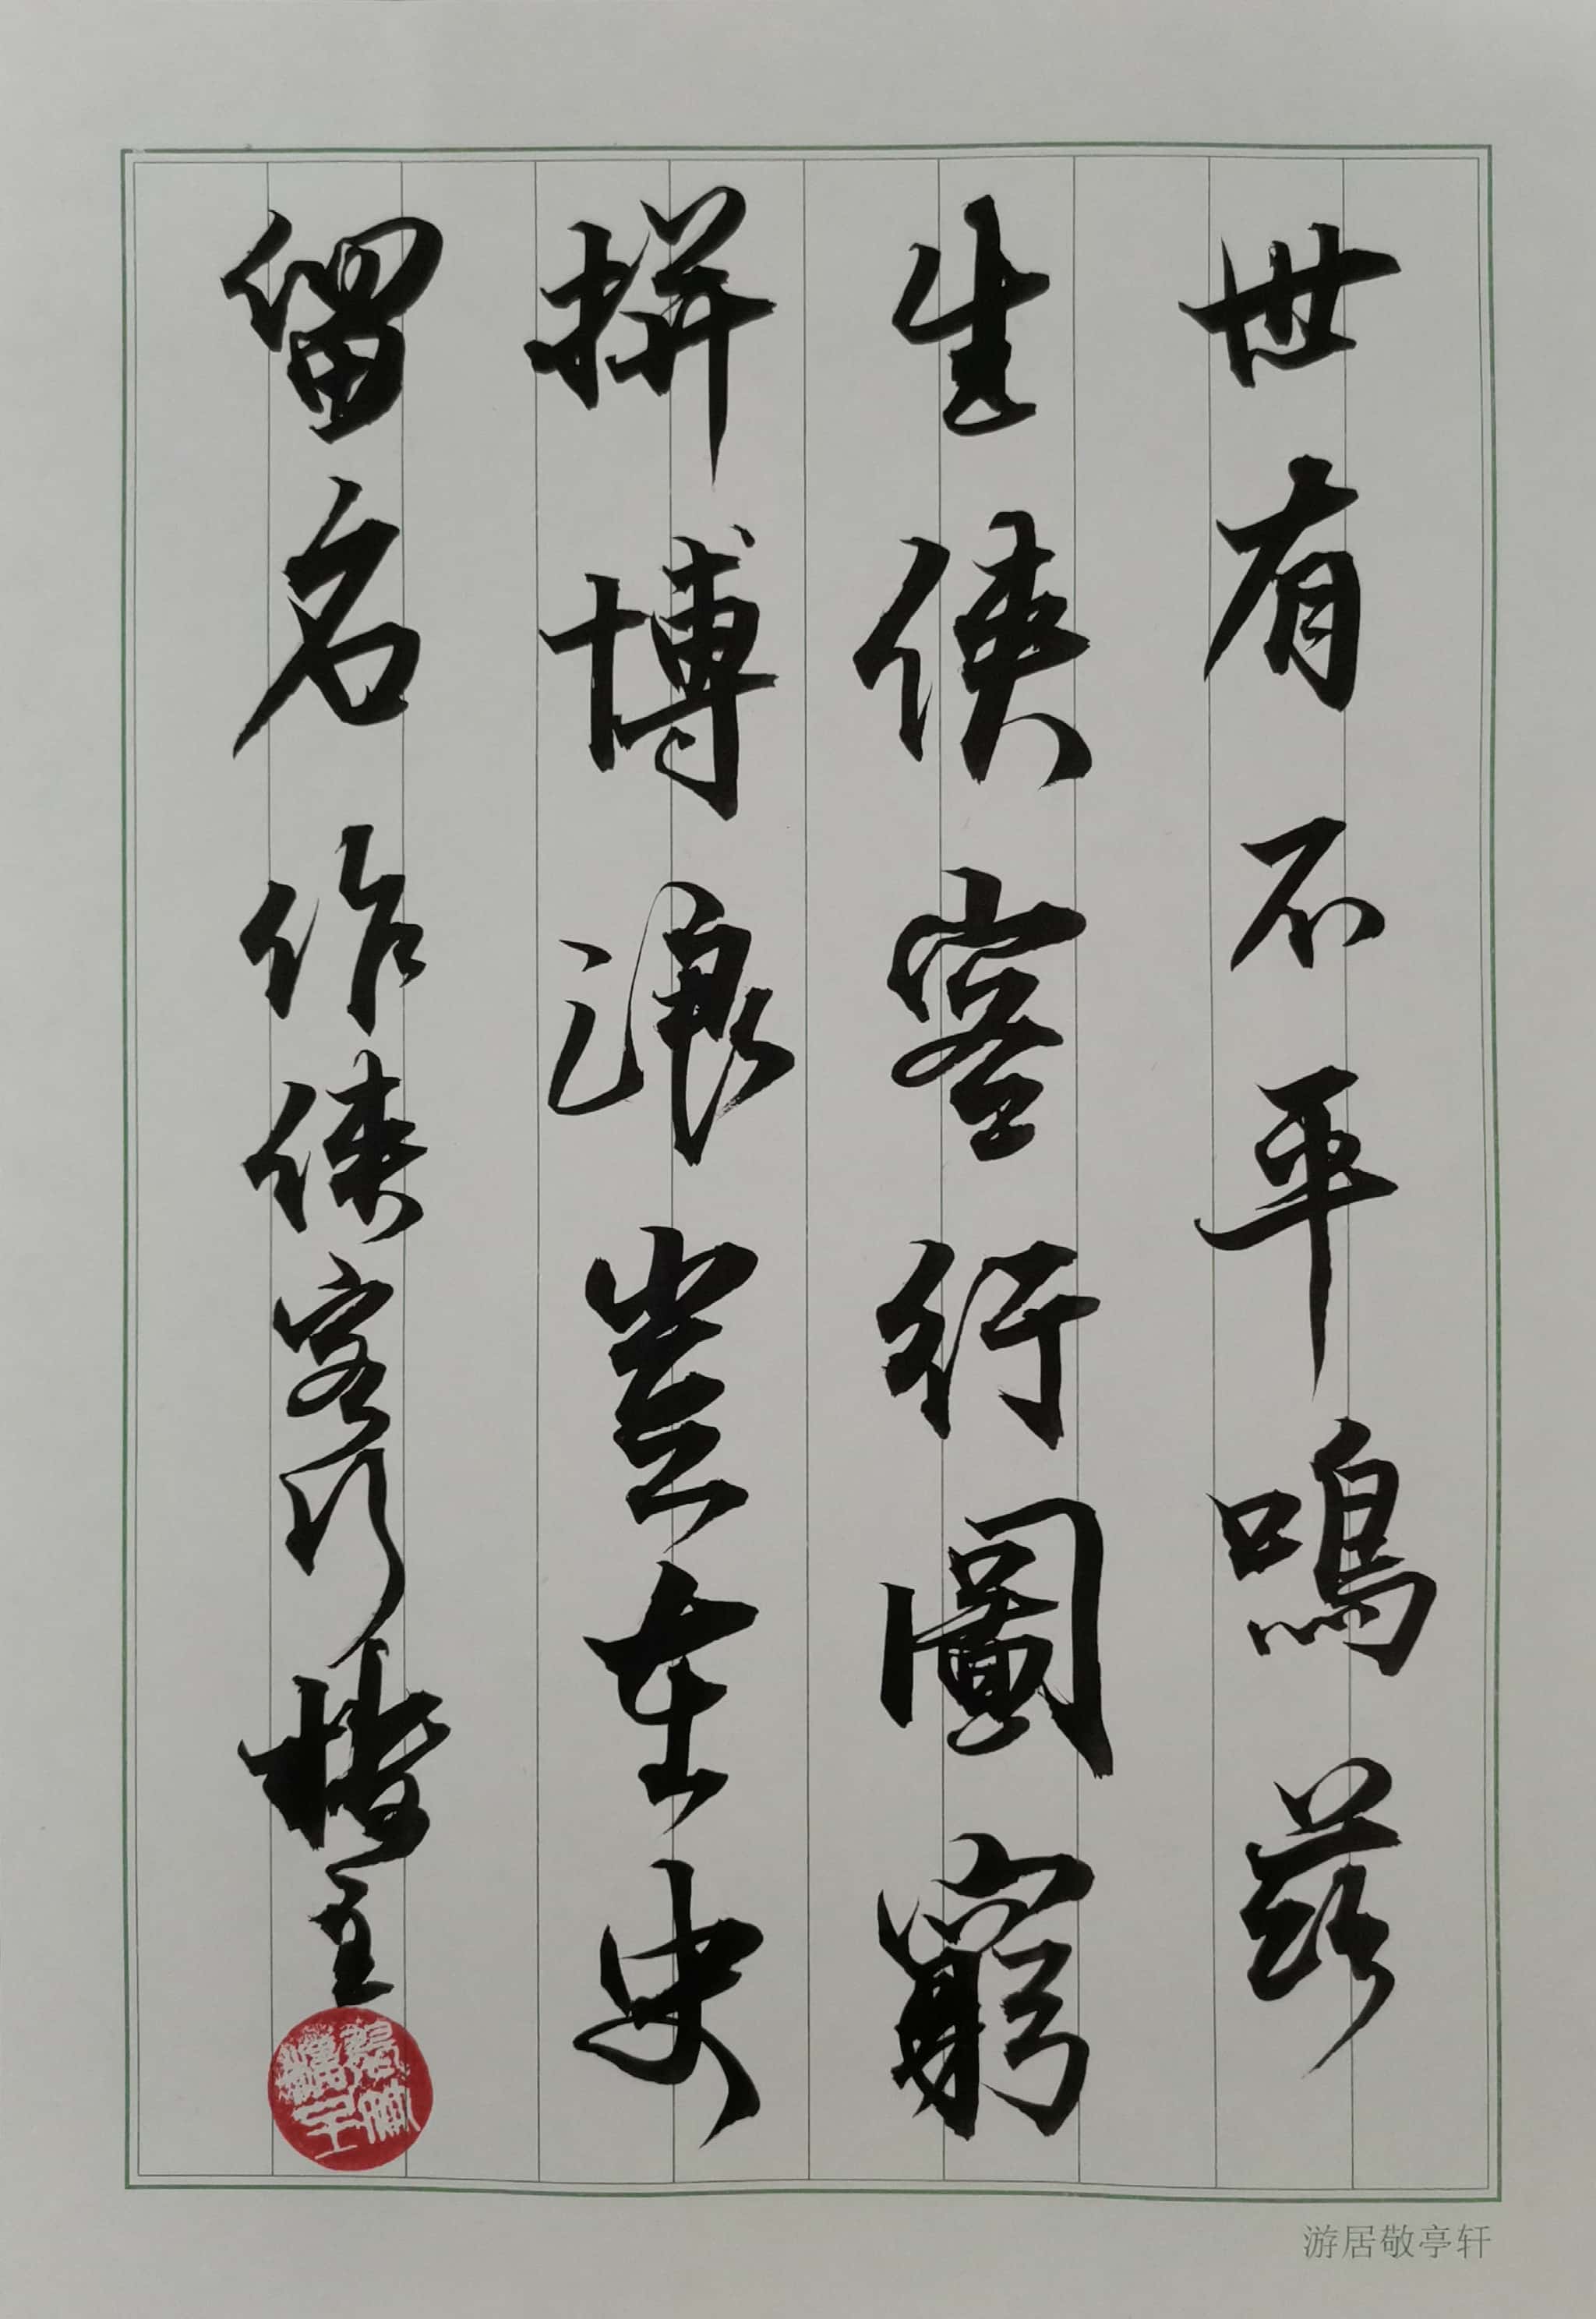 世有不平鳴茲
生俠客行圖窮
拼博浪豈在史
留名作俠客行 主
游居敬亭轩